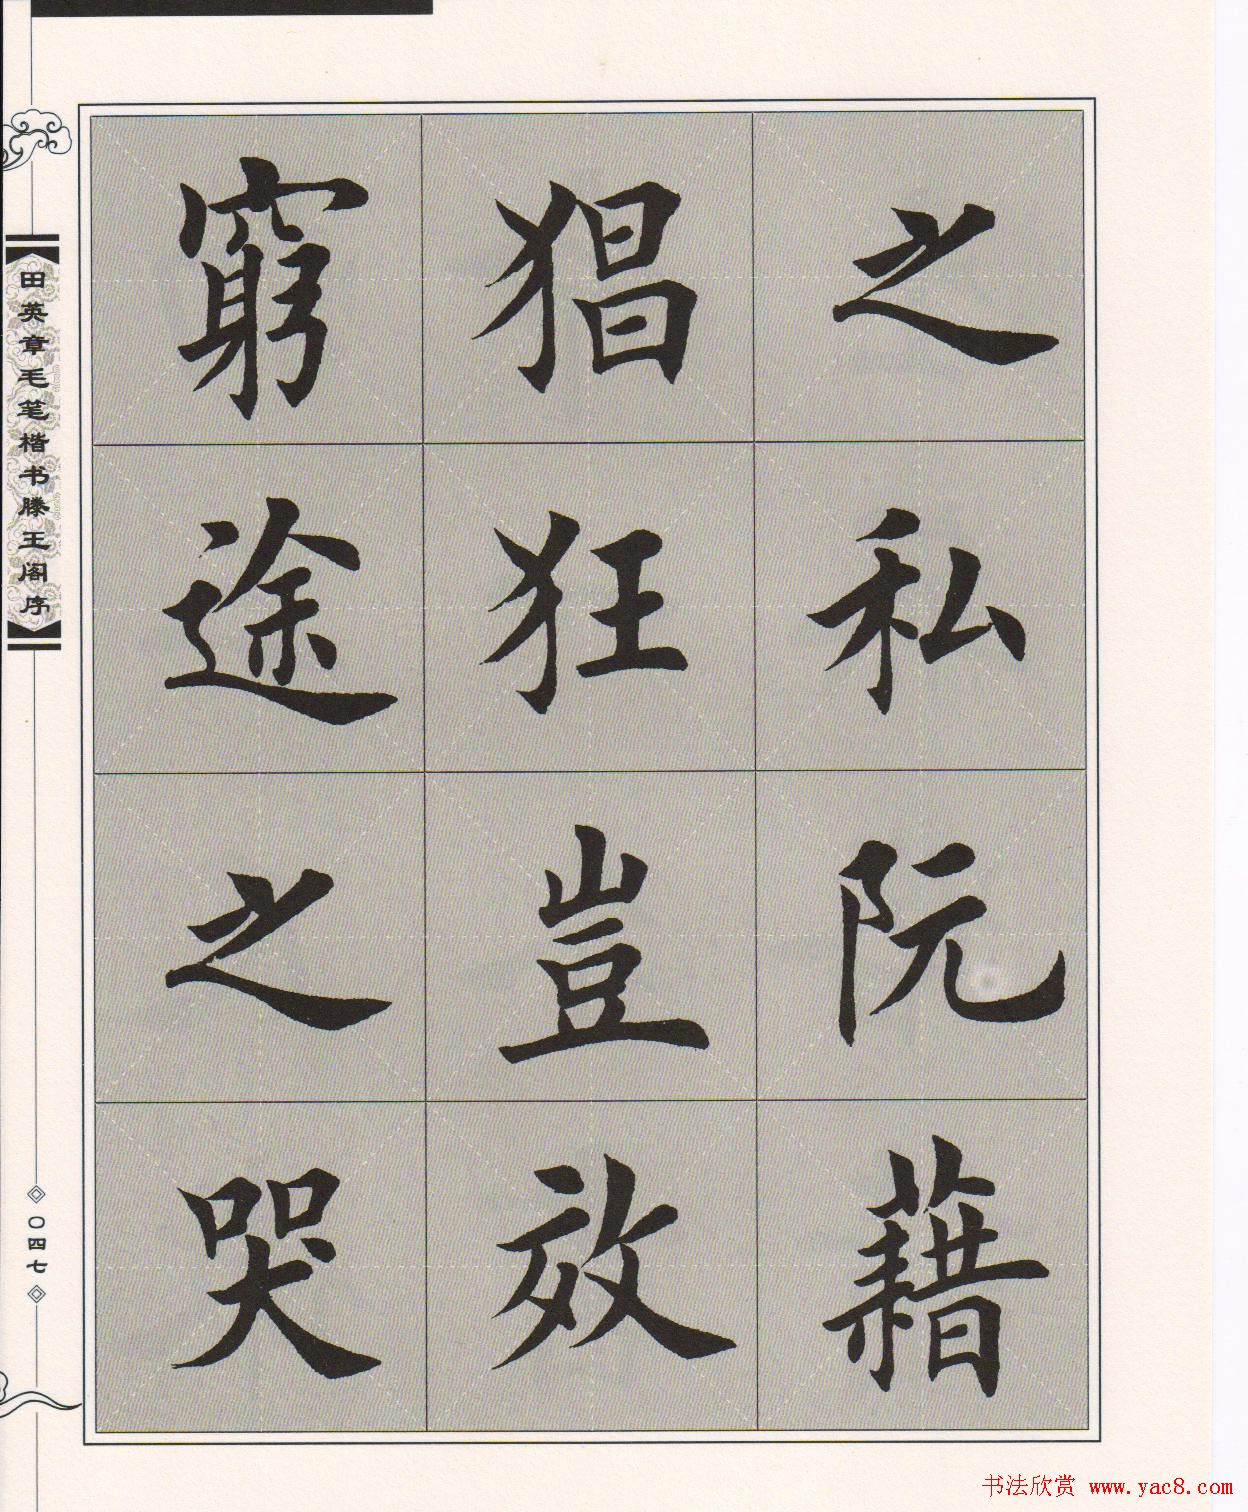 之私阮藉
猖狂豈效
窮途之哭
田英章毛笔楷书滕王阁序
〇四七
书法欣赏 www.yac8.com